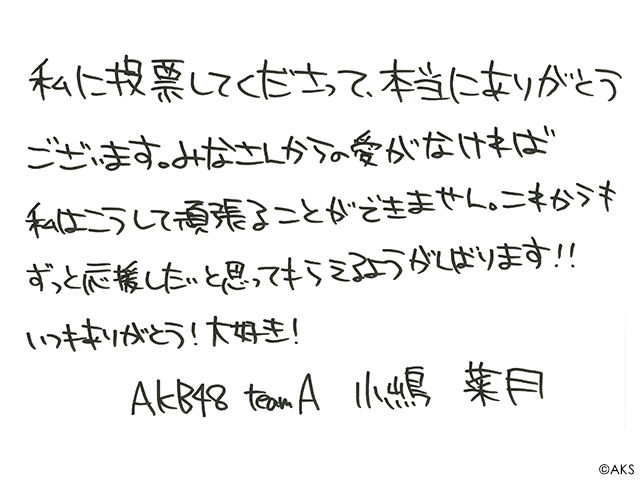 私に投票してくださって、本当にありがとう
ございます。みなさんからの愛がなければ
私はこうして頑張ることができません。これからも
ずっと応援したいと思ってもらえるようがんばります!!
いつもありがとう!大好き!
AKB48 teamA 小嶋 菜月
©AKS